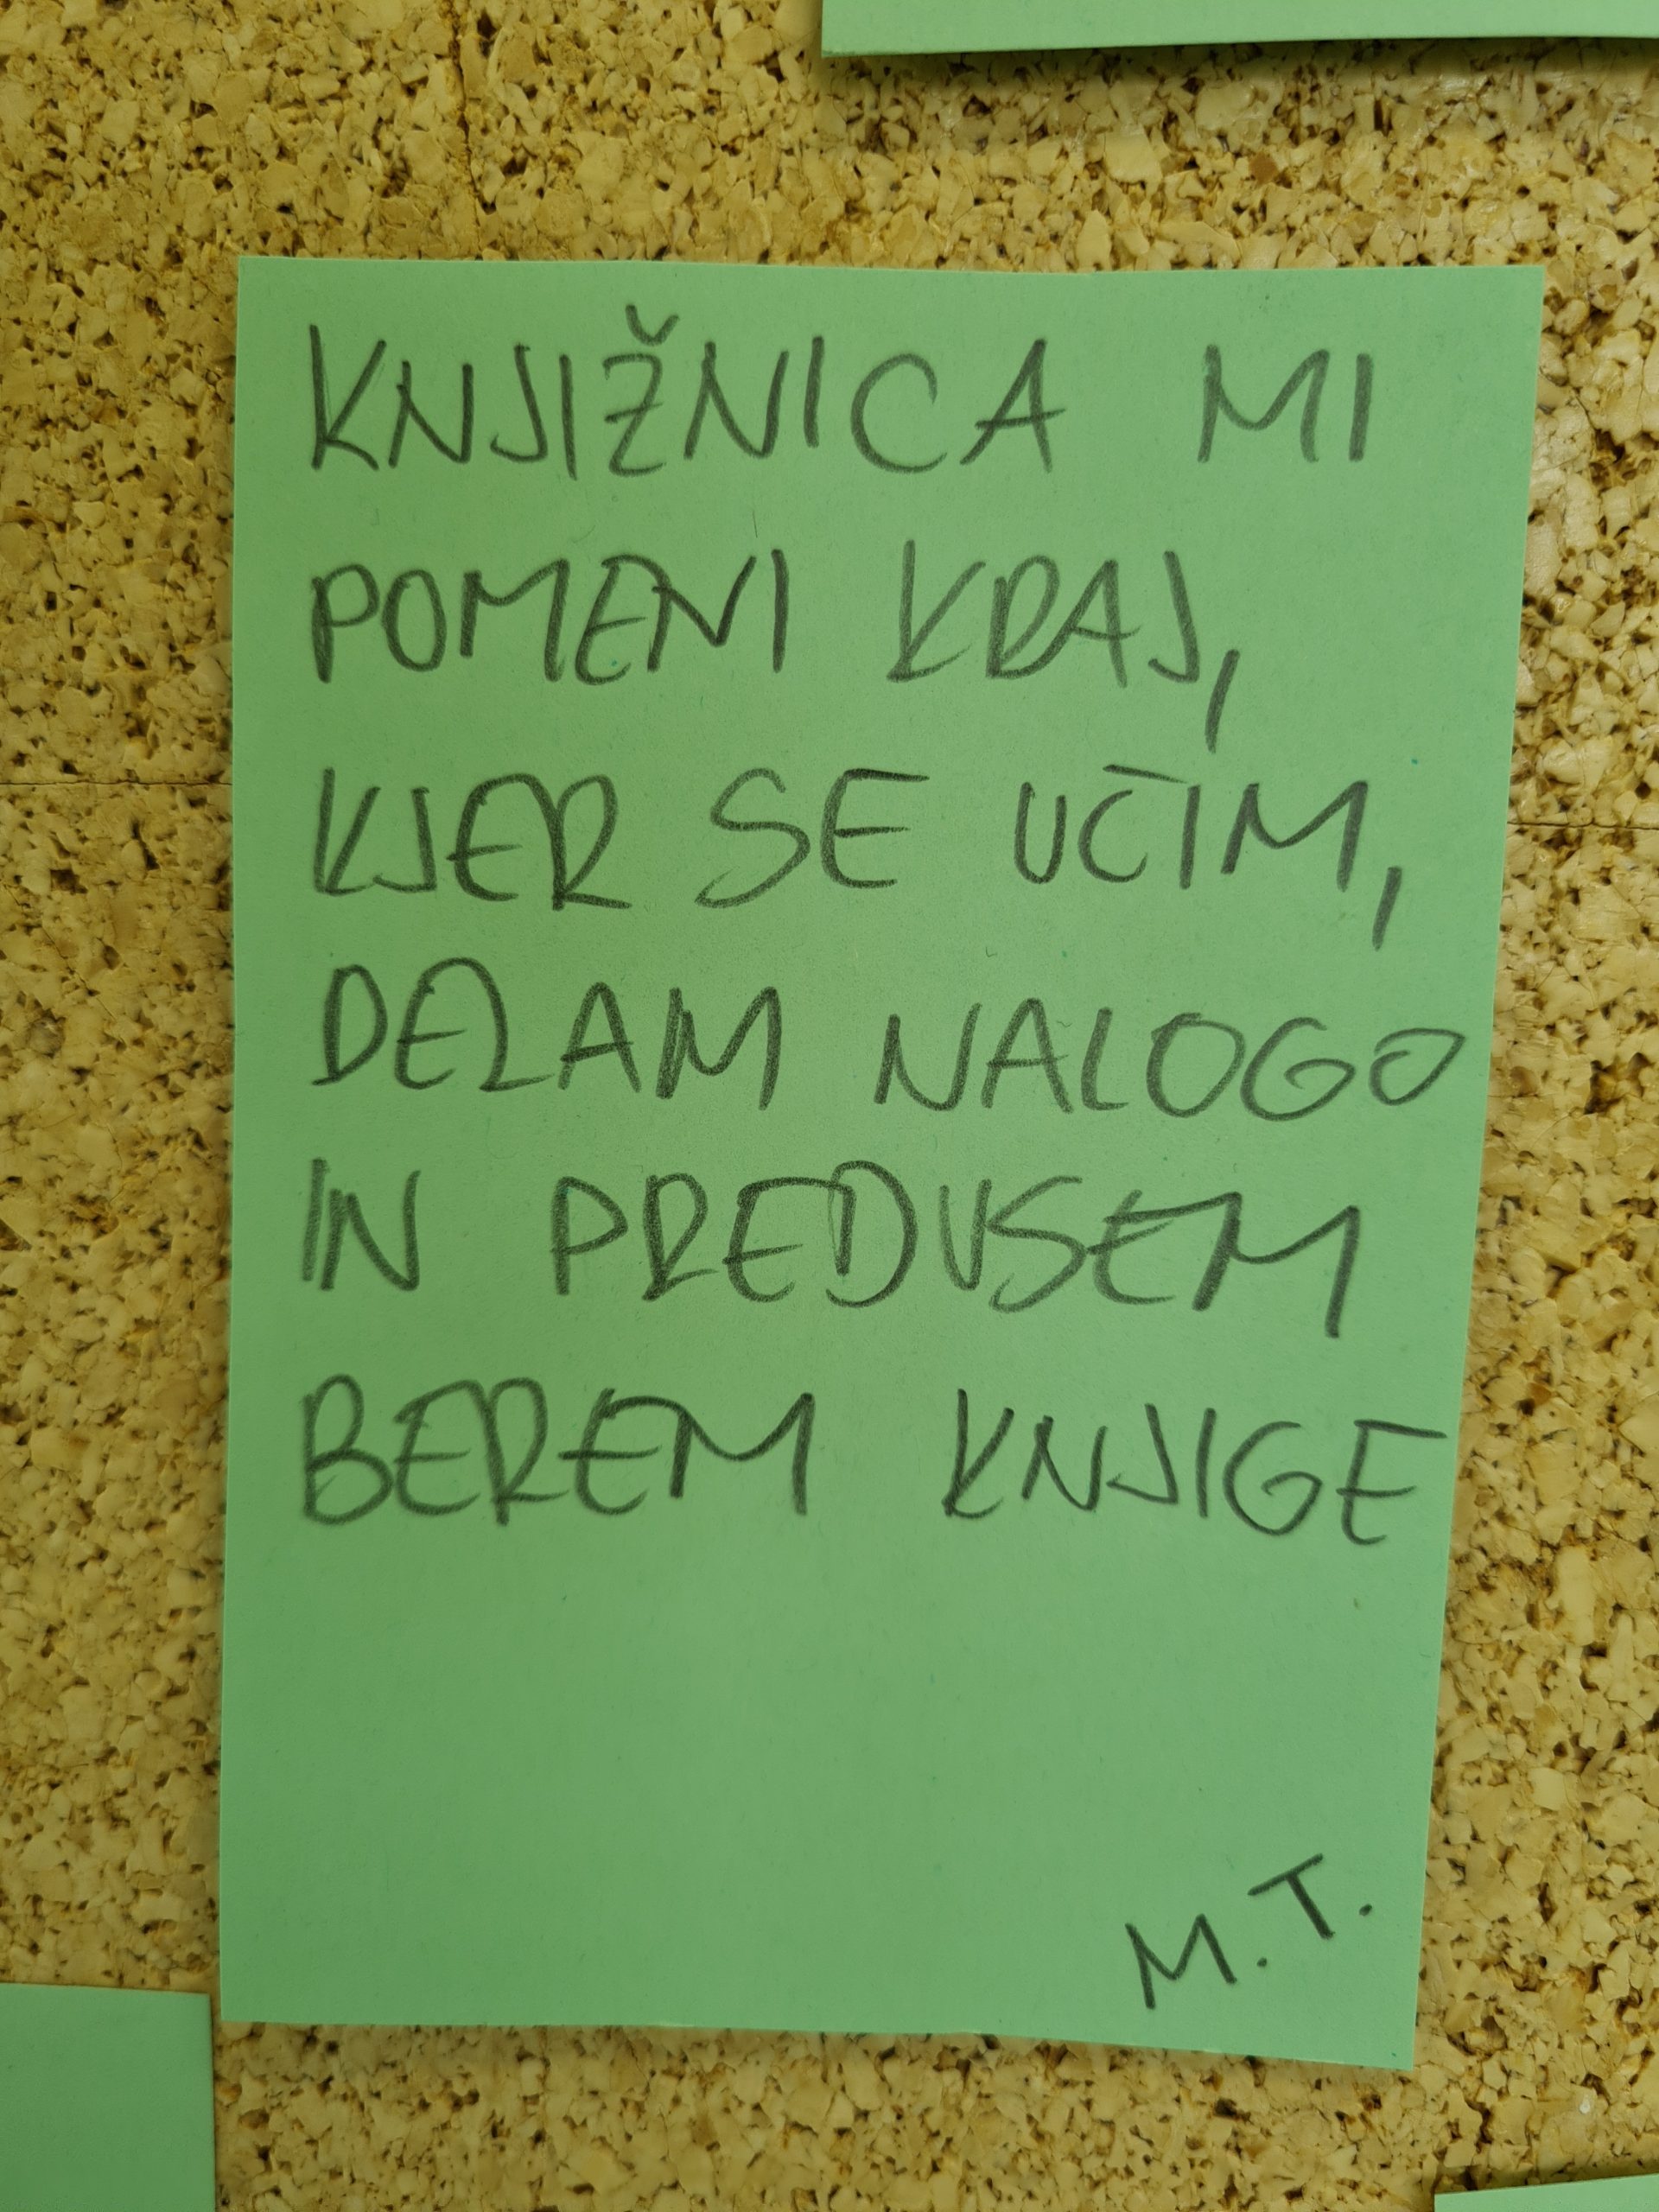 KNJIŽNICA MI
POMENI KRAJ,
KJER SE UČIM,
DELAM NALOGO
IN PREDVSEM
BEREM KNJIGE
M.T.